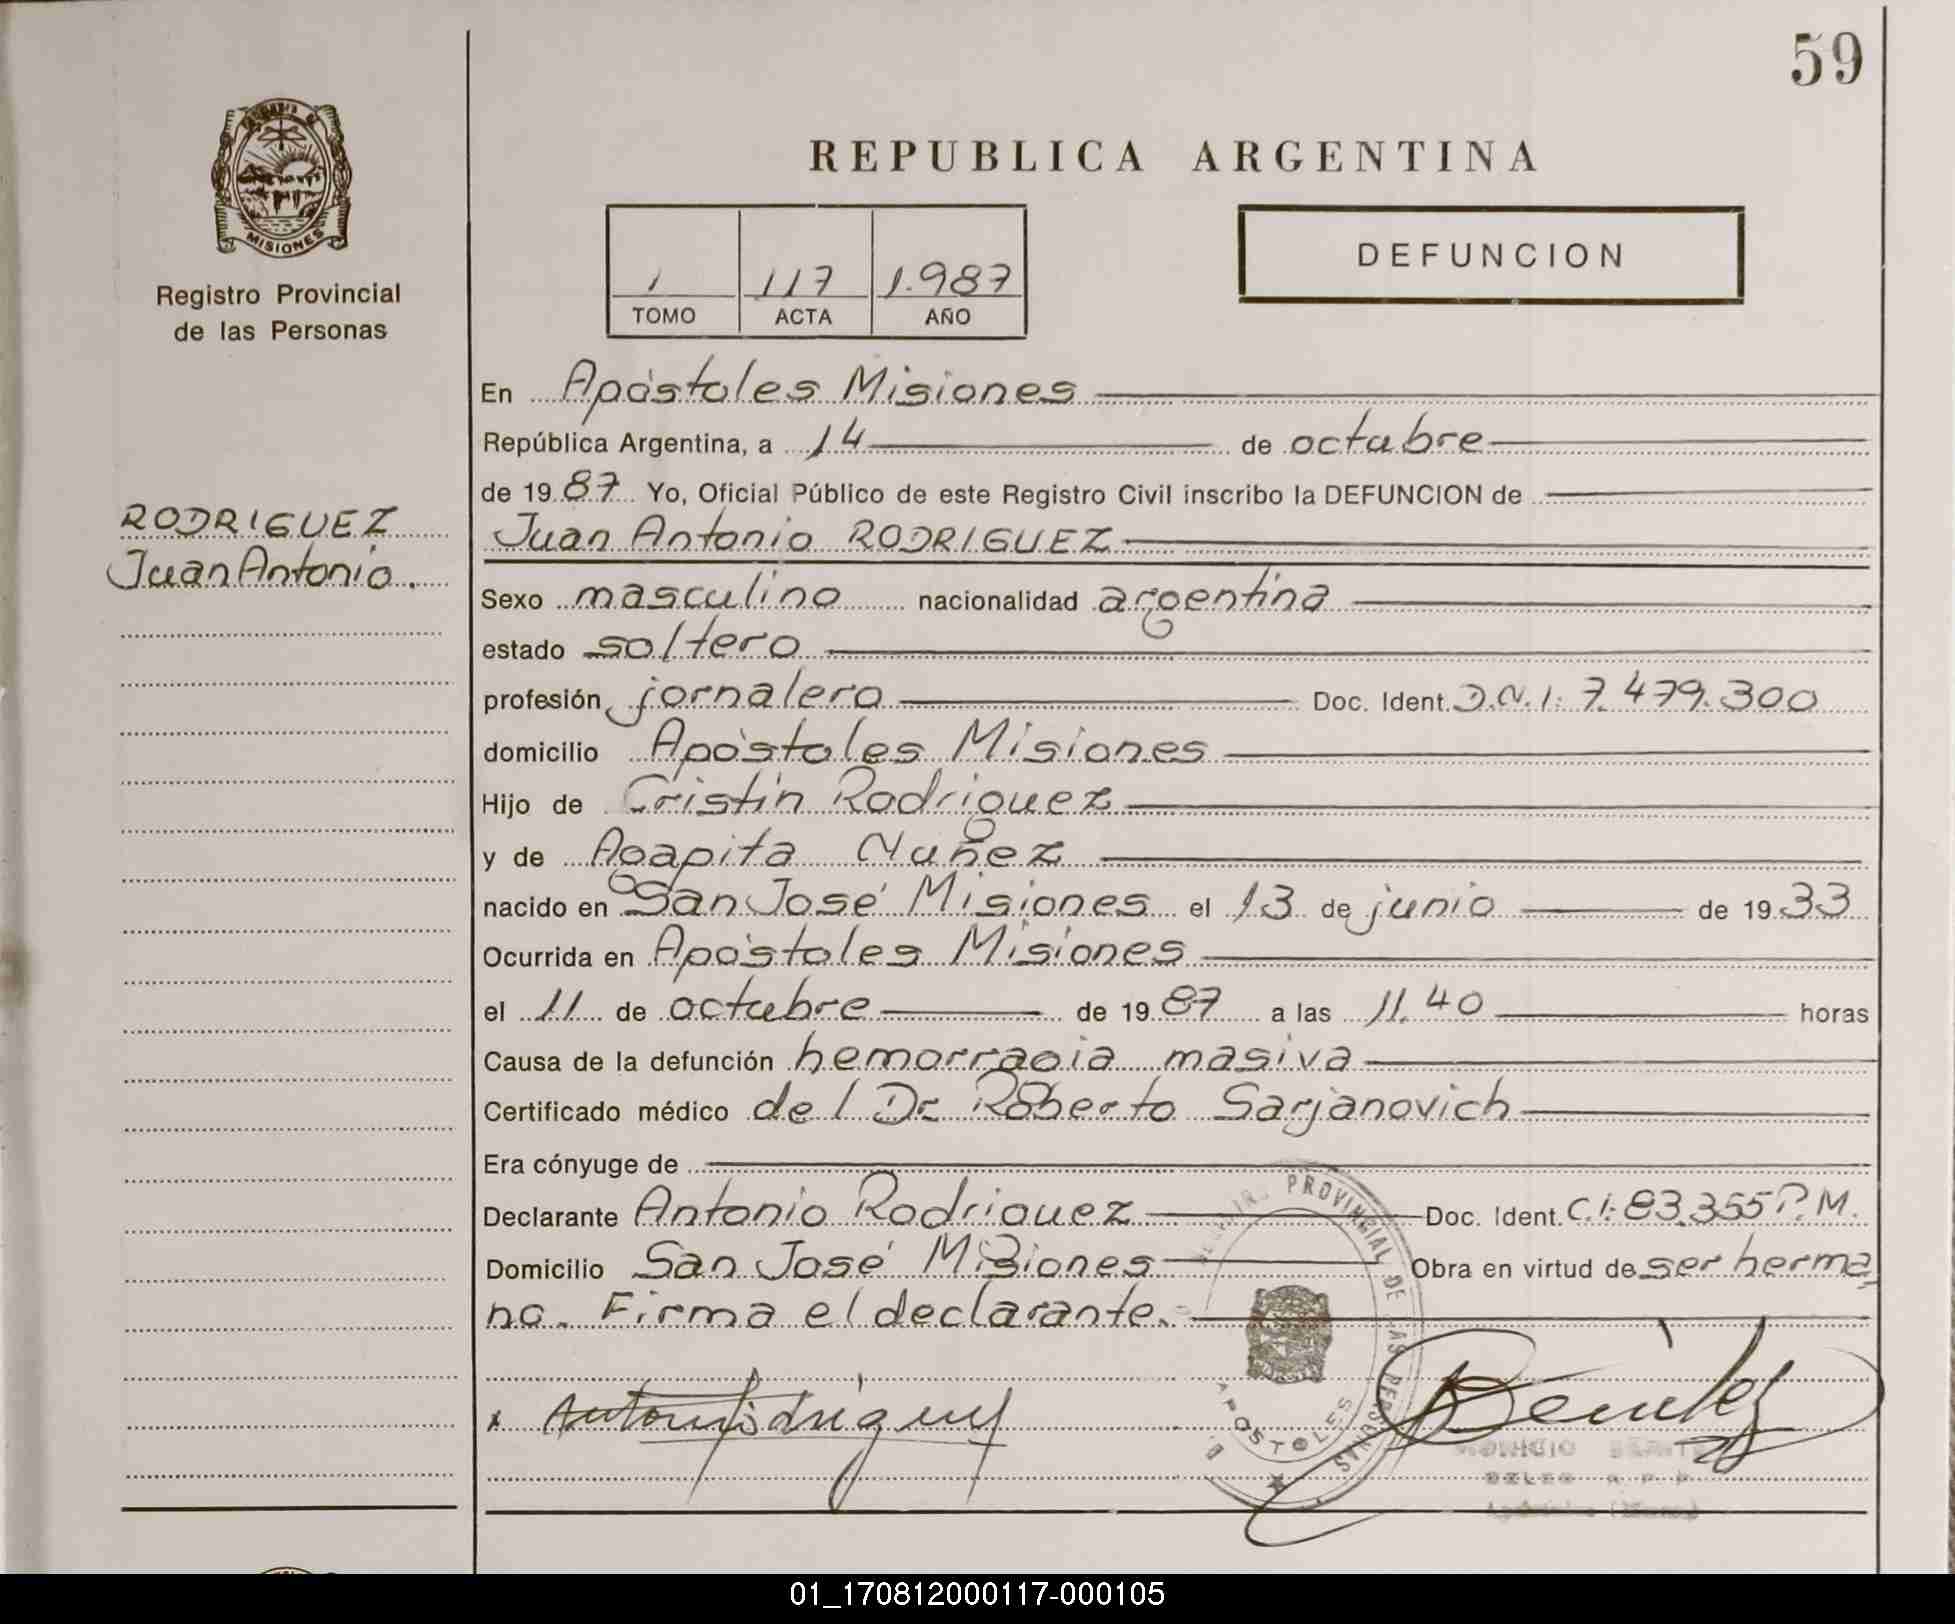 59
MISIONES
Registro Provincial
de las Personas
REPUBLICA ARGENTINA
1 117 1.987
TOMO ACTA AÑO
DEFUNCION
RODRIGUEZ
Juan Antonio.
En Apóstoles Misiones
República Argentina, a 14 de octubre
de 1987 Yo, Oficial Público de este Registro Civil inscribo la DEFUNCION de
Juan Antonio RODRIGUEZ
Sexo masculino nacionalidad argentina
estado soltero
profesión jornalero Doc. Ident. D.N.I: 7.479.300
domicilio Apóstoles Misiones
Hijo de Cristin Rodriguez
y de Agapita Nuñez
nacido en San José Misiones el 13 de junio de 1933
Ocurrida en Apóstoles Misiones
el 11 de octubre de 1987 a las 11.40 horas
Causa de la defunción hemorragia masiva
Certificado médico del Dr Roberto Sarjanovich
Era cónyuge de
Declarante Antonio Rodriguez Doc. Ident. C.I: 83.355 P.M.
Domicilio San José Misiones Obra en virtud de ser herma
no. Firma el declarante.
PROVINCIAL DE LAS PERSONAS
APOSTOLES
Antonio Rodriguez
Benitez
01_170812000117-000105